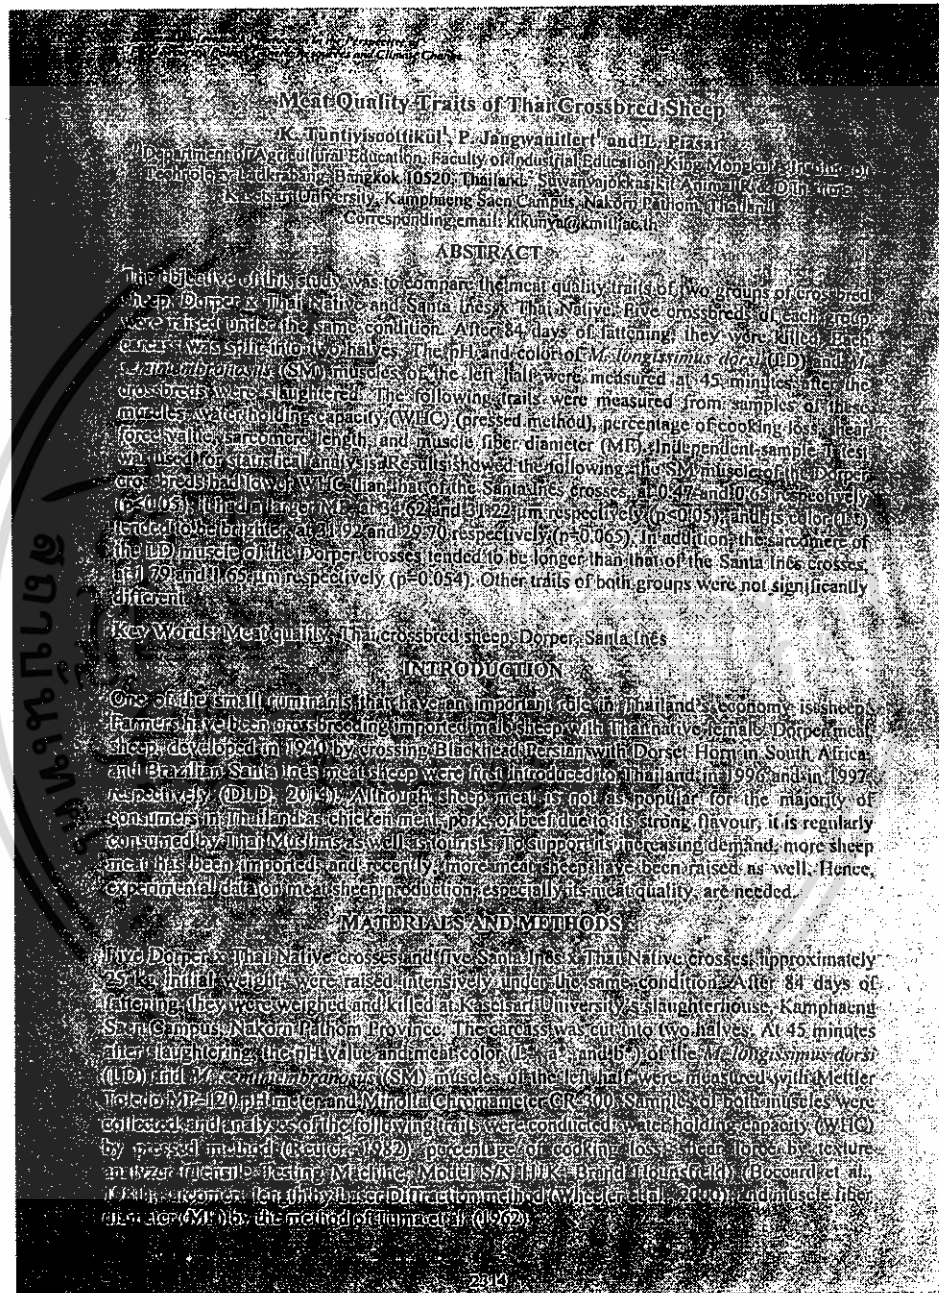 and Climate Change
Meat Quality Traits of Thai Crossbred Sheep
K. Tuntivisoottikul¹, P. Jangwanitlert¹ and L.
Department of Agricultural Education, Faculty of Industrial Education, King Mongkut's Institute of
Technology Ladkrabang, Bangkok 10520, Thailand. Suwanvajokkasikit Animal R & D Institute,
Kasetsart University, Kamphaeng Saen Campus, Nakorn Pathom, Thailand
Corresponding email:
ABSTRACT
The objective of this study was to compare the meat quality traits of two groups of crossbred
sheep, Dorper x Thai Native and Santa Ines x Thai Native. Five crossbreds of each group
were raised under the same condition. After 84 days of fattening, they were killed. Each
carcass was split into two halves. The pH and color of M. longissimus dorsi (LD) and M.
semimembranosus (SM) muscles of the left half were measured at 45 minutes after the
crossbreds were slaughtered. The following traits were measured from samples of these
muscles: water holding capacity (WHC) (pressed method), percentage of cooking loss, shear
force value, sarcomere length, and muscle fiber diameter (MF). Independent-sample T-test
was used for statistical analysis. Results showed the following: the SM muscle of the Dorper
crossbreds had lower WHC than that of the Santa Ines crosses, at 0.47 and 0.65 respectively
(p<0.05); it had a larger MF, at 34.62 and 31.22 µm respectively (p<0.05); and its color (L*)
tended to be brighter, at and 29.70 respectively (p=0.065). In addition, the sarcomere of
the LD muscle of the Dorper crosses tended to be longer than that of the Santa Ines crosses,
at 1.79 and 1.65 µm respectively (p=0.054). Other traits of both groups were not significantly
different.
Key Words: Meat quality, Thai crossbred sheep, Dorper, Santa Ines
INTRODUCTION
One of the small ruminants that have an important role in Thailand's economy is sheep.
Farmers have been crossbreeding imported male sheep with Thai native female. Dorper meat
sheep, developed in 1940 by crossing Blackhead Persian with Dorset Horn in South Africa,
and Brazilian Santa Ines meat sheep were first introduced to Thailand in 1996 and in 1997,
respectively (DLD, 2014). Although sheep meat is not as popular for the majority of
consumers in Thailand as chicken meat, pork, or beef due to its strong flavour, it is regularly
consumed by Thai Muslims as well as tourists. To support its increasing demand, more sheep
meat has been imported, and recently, more meat sheep have been raised as well. Hence,
experimental data on meat sheep production, especially its meat quality, are needed.
MATERIALS AND METHODS
Five Dorper x Thai Native crosses and five Santa Ines x Thai Native crosses, approximately
25 kg initial weight, were raised intensively under the same condition. After 84 days of
fattening, they were weighed and killed at Kasetsart University's slaughterhouse, Kamphaeng
Saen Campus, Nakorn Pathom Province. The carcass was cut into two halves. At 45 minutes
after slaughtering, the pH value and meat color (L*, a*, and b*) of the M. longissimus dorsi
(LD) and M. semimembranosus (SM) muscles of the left half were measured with Mettler
Toledo MP-120 pH meter and Minolta Chromameter CR-300. Samples of both muscles were
collected, and analyses of the following traits were conducted: water holding capacity (WHC)
by pressed method (Reuter, 1982), percentage of cooking loss, shear force by texture
analyzer (Tensile Testing Machine, Model S/N H1K, Brand Hounsfield) (Boccard et al.,
1981), sarcomere length by Laser Diffraction method (Wheeler et al., 2000), and muscle fiber
diameter (MF) by the method of Tuma et al. (1962).
2314